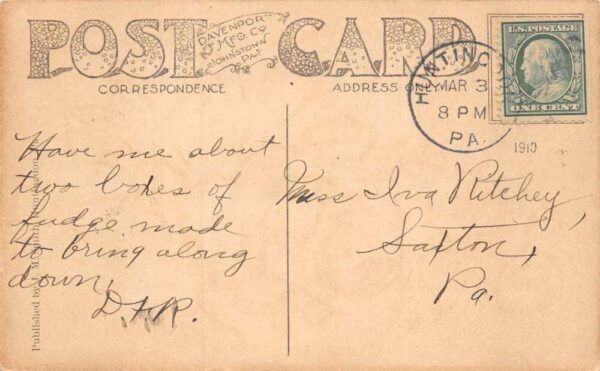 POST CARD
DAVENPORT
MFG CO
JOHNSTOWN
PA.
CORRESPONDENCE
ADDRESS ONLY
MAR 3
8 PM
PA.
1910
U.S. POSTAGE
ONE CENT
Have me about
two boxes of
fudge made
to bring along
down,
D.F.R.
Miss Iva Ritchey,
Saxton,
Pa.
Published by